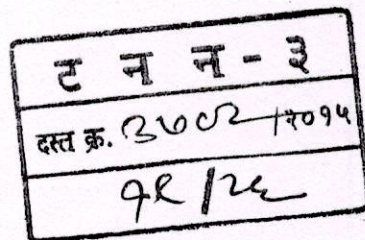 ट न न - ३
दस्त क्र. ३७८२/२०१५
१८/२६